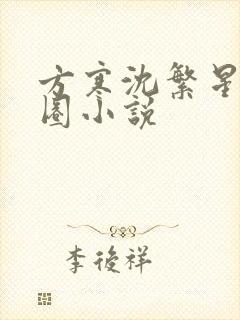 方寒沈繁星
圈小说
李後祥